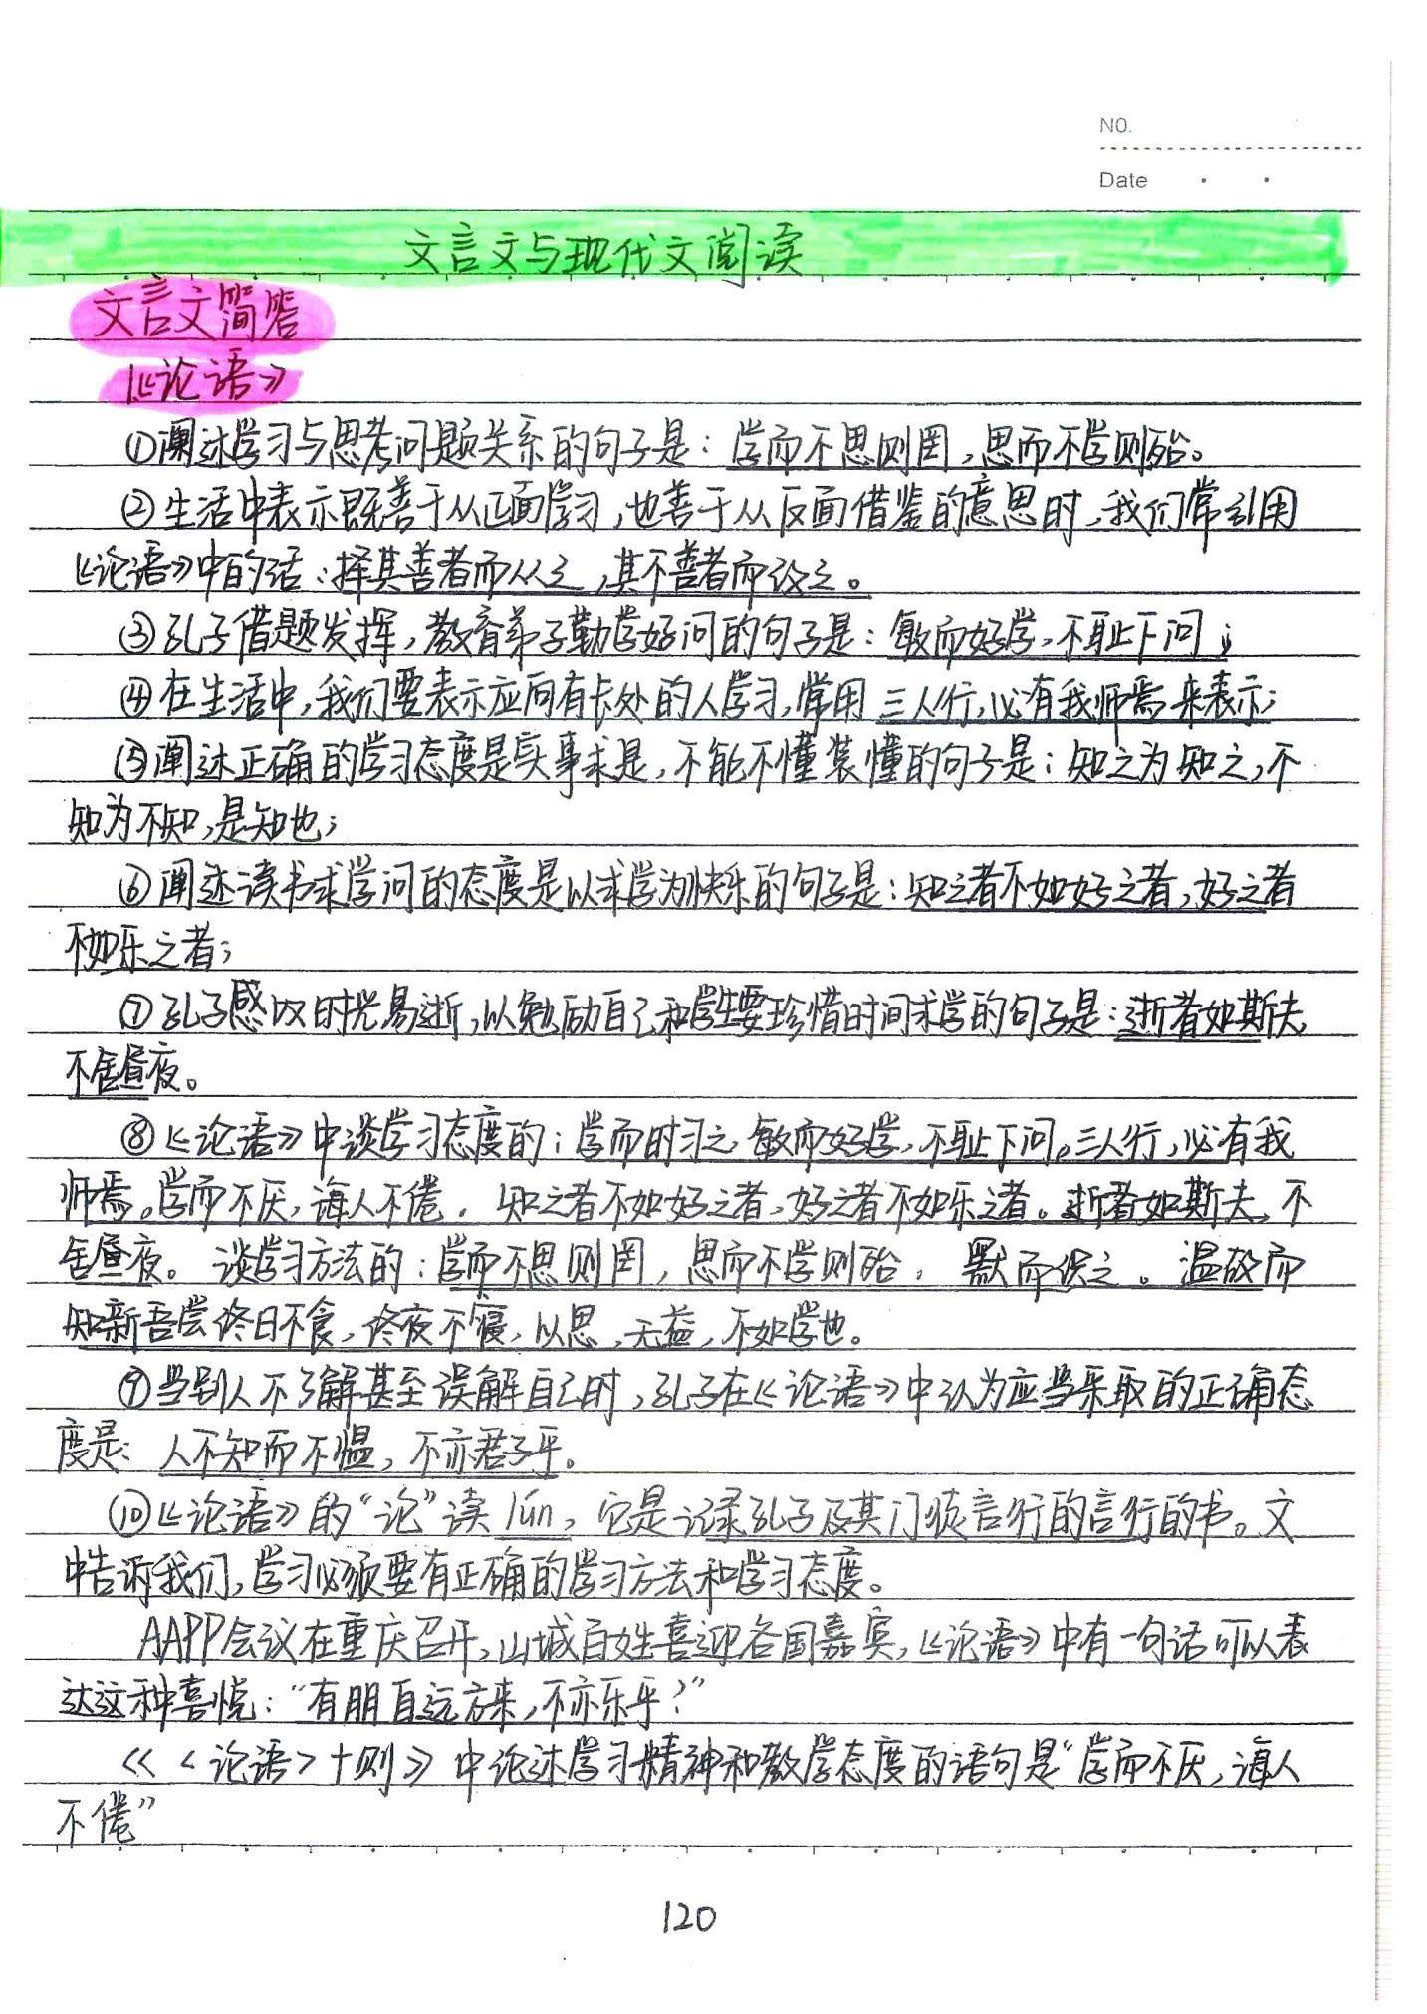 NO.
Date
文言文与现代文阅读
文言文简答
《论语》
①阐述学习与思考问题关系的句子是：学而不思则罔，思而不学则殆。
②生活中表示既善于从正面学习，也善于从反面借鉴的意思时，我们常引用
《论语》中的话：择其善者而从之，其不善者而改之。
③孔子借题发挥，教育弟子勤学好问的句子是：敏而好学，不耻下问；
④在生活中，我们要表示应向有长处的人学习，常用 三人行，必有我师焉 来表示；
⑤阐述正确的学习态度是实事求是，不能不懂装懂的句子是：知之为知之，不
知为不知，是知也；
⑥阐述读书求学问的态度是以求学为快乐的句子是：知之者不如好之者，好之者
不如乐之者；
⑦孔子感叹时光易逝，以勉励自己和学生要珍惜时间求学的句子是：逝者如斯夫
不舍昼夜。
⑧《论语》中谈学习态度的：学而时习之，敏而好学，不耻下问。三人行，必有我
师焉。学而不厌，诲人不倦。知之者不如好之者，好之者不如乐之者。逝者如斯夫，不
舍昼夜。谈学习方法的：学而不思则罔，思而不学则殆。默而识之。温故而
知新吾尝终日不食，终夜不寝，以思，无益，不如学也。
⑨当别人不了解甚至误解自己时，孔子在《论语》中认为应当采取的正确态
度是：人不知而不愠，不亦君子乎。
⑩《论语》的“论”读 lún，它是记录孔子及其门徒言行的言行的书。文
中告诉我们，学习必须要有正确的学习方法和学习态度。
AAPP会议在重庆召开，山城百姓喜迎各国嘉宾，《论语》中有一句话可以表
达这种喜悦：“有朋自远方来，不亦乐乎？”
《〈论语〉十则》中论述学习精神和教学态度的语句是“学而不厌，诲人
不倦”
120